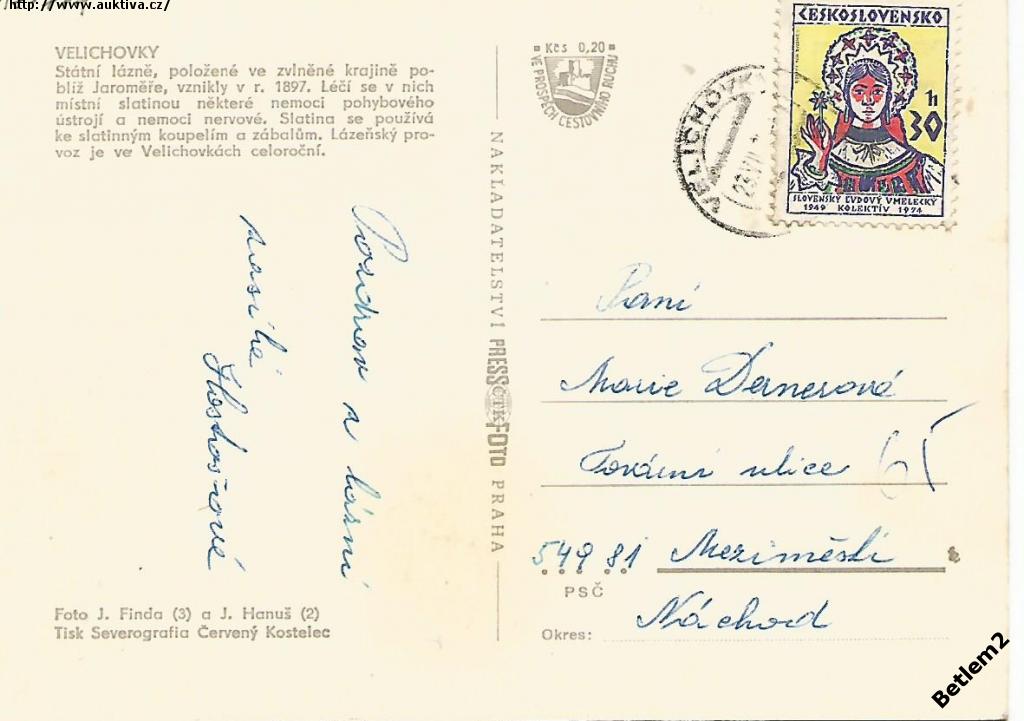 http://www.auktiva.cz/
VELICHOVKY
Státní lázně, položené ve zvlněné krajině po-
blíž Jaroměře, vznikly v r. 1897. Léčí se v nich
místní slatinou některé nemoci pohybového
ústrojí a nemoci nervové. Slatina se používá
ke slatinným koupelím a zábalům. Lázeňský pro-
voz je ve Velichovkách celoroční.
Pozdrav z lázní
zasílá
Foto J. Finda (3) a J. Hanuš (2)
Tisk Severografia Červený Kostelec
NAKLADATELSTVÍ PRESSFOTO PRAHA
ČTK
Kčs 0,20
VE PROSPĚCH CESTOVNÍHO RUCHU
VELICHOVKY
ČESKOSLOVENSKO
1h
30
SLOVENSKÝ ĽUDOVÝ UMELECKÝ
1949 KOLEKTÍV 1974
Paní
Marie Dernerová
Tovární ulice 65
549 81 Meziměstí
PSČ
Náchod
Okres:
Betlem2